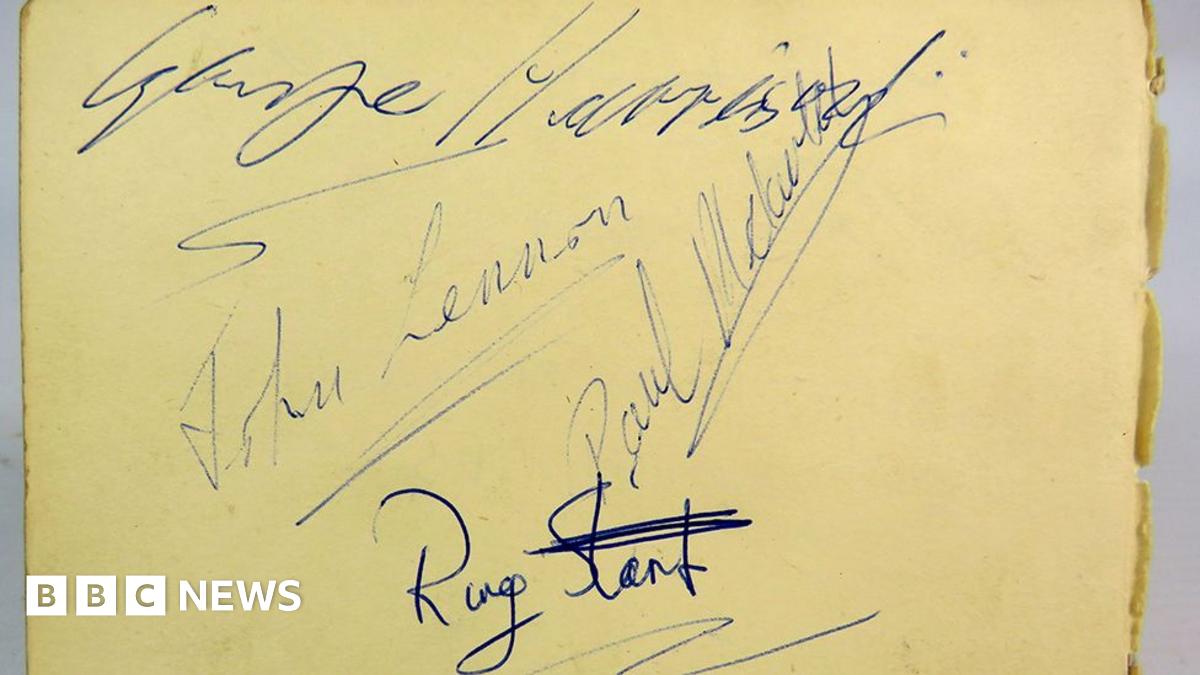 George Harrison
John Lennon
Paul McCartney
Ringo Starr
BBC NEWS